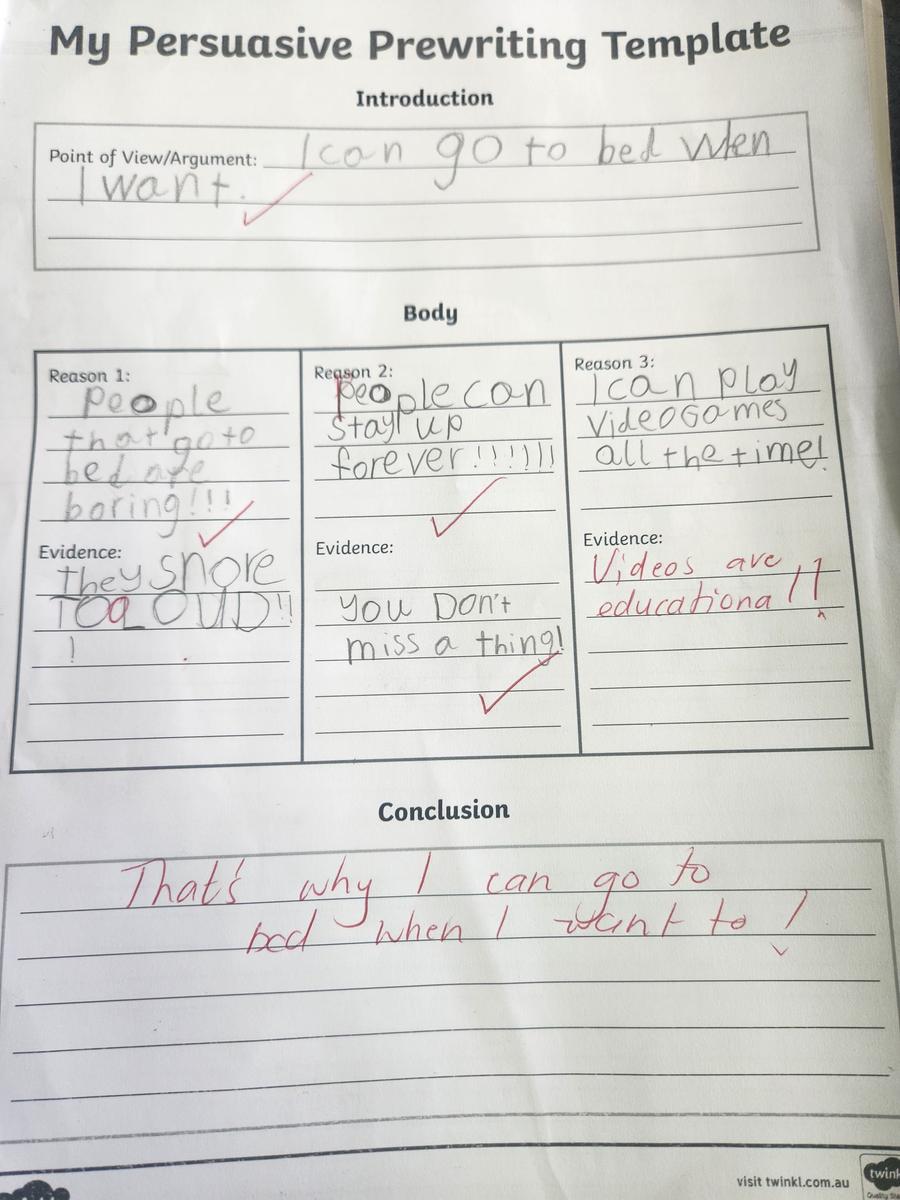 My Persuasive Prewriting Template
Introduction
Point of View/Argument: I can go to bed when
I want.
Body
Reason 1:
people
that go to
bed are
boring!!!
Evidence:
they snore
TOO LOUD!!
!
Reason 2:
people can
stay up
forever!!!!!!
Evidence:
you Don't
miss a thing!
Reason 3:
I can play
videogames
all the time!
Evidence:
Videos are
educational!!
Conclusion
That's why I can go to
bed when I want to!
visit twinkl.com.au
twinkl